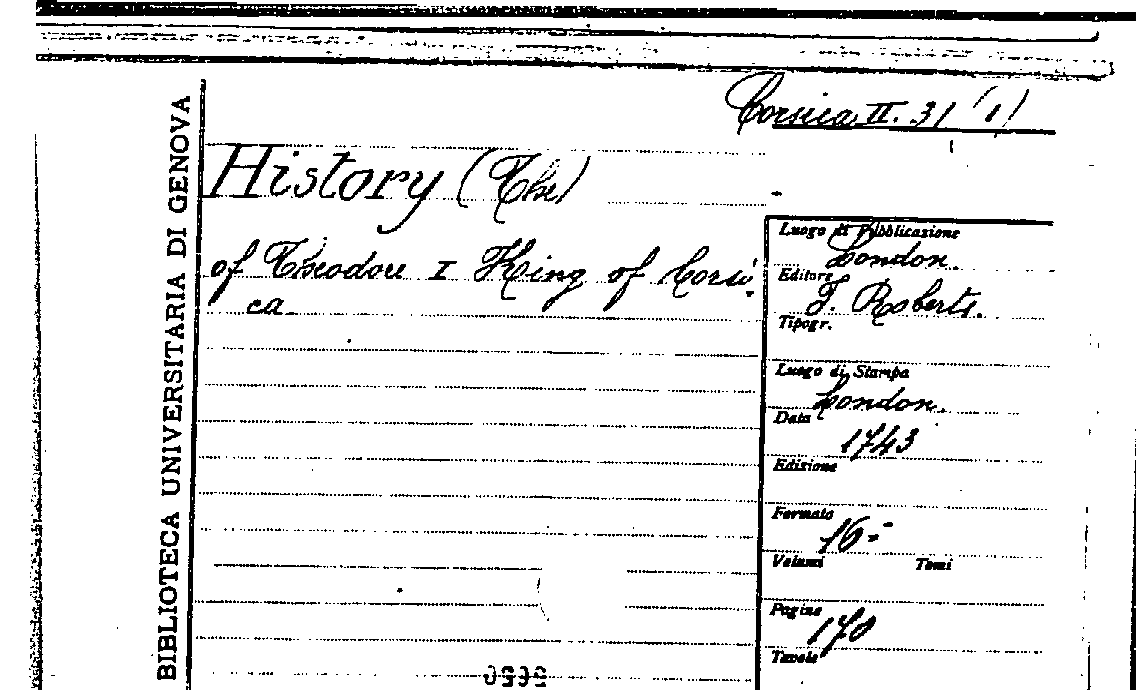 BIBLIOTECA UNIVERSITARIA DI GENOVA
Corsica II. 31 (1)
History (The)
of Theodore I King of Corsi-
ca
Luogo di Pubblicazione
London.
Editore
J. Roberts.
Tipogr.
Luogo di Stampa
London.
Data
1743
Edizione
Formato
16=
Volumi Tomi
Pagine
170
Tavole